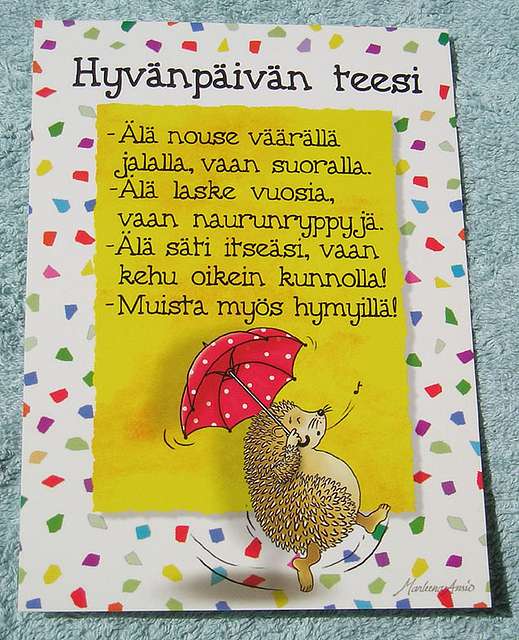 Hyvänpäivän teesi
-Älä nouse väärällä
jalalla, vaan suoralla.
-Älä laske vuosia,
vaan naurunryppyjä.
-Älä säti itseäsi, vaan
kehu oikein kunnolla!
-Muista myös hymyillä!
Marleena Ansio